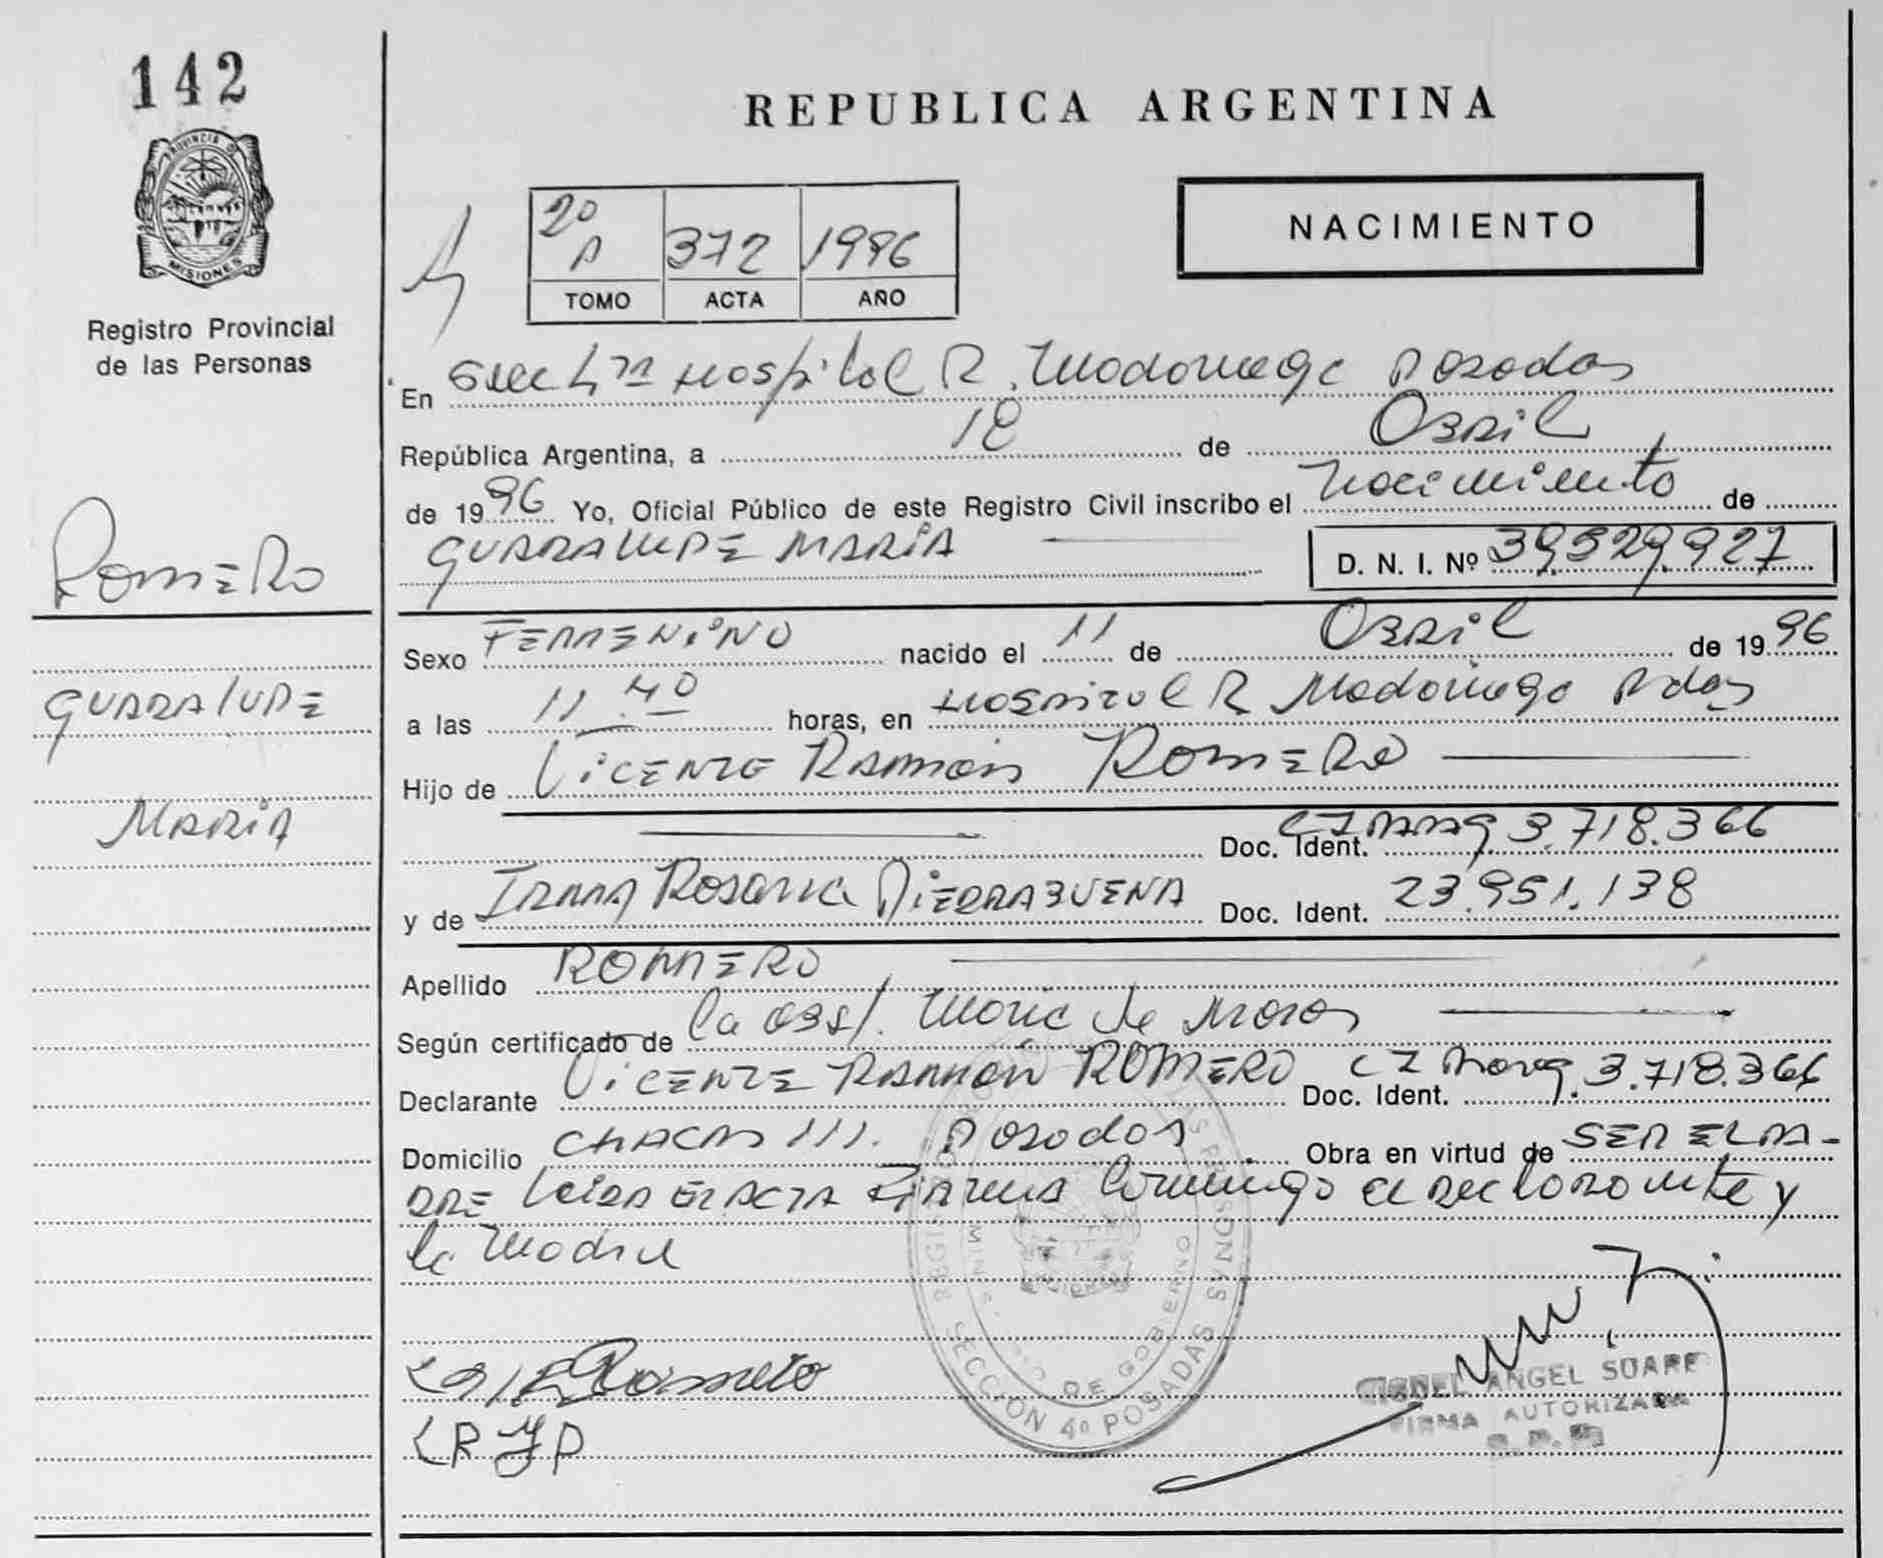 142
PROVINCIA DE
MISIONES
Registro Provincial
de las Personas
ROMERO
GUADALUPE
MARIA
REPUBLICA ARGENTINA
NACIMIENTO
20 372 1996
TOMO ACTA AÑO
En Secc 4ta Hospital R. Madariaga Posadas
República Argentina, a 18 de Abril
de 1996 Yo, Oficial Público de este Registro Civil inscribo el Nacimiento de
GUADALUPE MARIA D. N. I. Nº 39.529.927
Sexo FEMENINO nacido el 11 de Abril de 1996
a las 11.40 horas, en Hospital R Madariaga Pdas
Hijo de VICENTE RAMON ROMERO
Doc. Ident. CI 3.718.366
y de Irma Rosana PIEDRABUENA Doc. Ident. 23.951.138
Apellido ROMERO
Según certificado de la obst. Maria de Moros
Declarante VICENTE RAMÓN ROMERO Doc. Ident. CI 3.718.366
Domicilio CHACRA 111. Posadas Obra en virtud de SER EL PA-
DRE Leida EL ACTA Firma Conmigo el declarante y
la Madre
REGISTRO DE LAS PERSONAS
MINISTERIO DE GOBIERNO
SECCIÓN 4º POSADAS
Romero
ANGEL SUARE
FIRMA AUTORIZADA